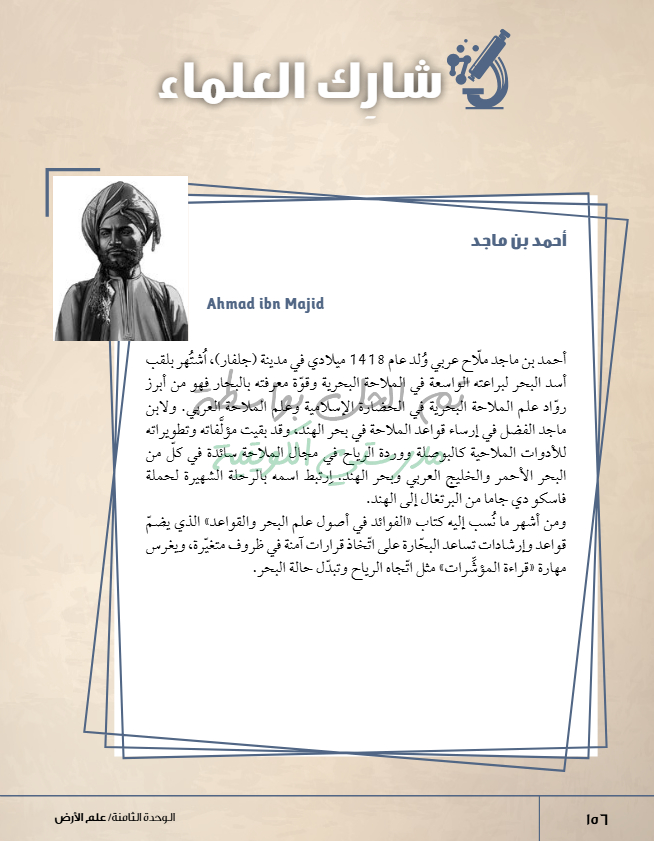 شارِك العلماء
أحمد بن ماجد
Ahmad ibn Majid
أحمد بن ماجد ملّاح عربي وُلد عام 1418 ميلادي في مدينة (جلفار)، اُشتُهر بلقب
أسد البحر لبراعته الواسعة في الملاحة البحرية وقوّة معرفته بالبحار فهو من أبرز
روّاد علم الملاحة البحرية في الحضارة الإسلامية وعلم الملاحة العربي. ولابن
ماجد الفضل في إرساء قواعد الملاحة في بحر الهند، وقد بقيت مؤلّفاته وتطويراته
للأدوات الملاحية كالبوصلة ووردة الرياح في مجال الملاحة سائدة في كلّ من
البحر الأحمر والخليج العربي وبحر الهند. ارتبط اسمه بالرحلة الشهيرة لحملة
فاسكو دي جاما من البرتغال إلى الهند.
ومن أشهر ما نُسب إليه كتاب «الفوائد في أصول علم البحر والقواعد» الذي يضمّ
قواعد وإرشادات تساعد البحّارة على اتّخاذ قرارات آمنة في ظروف متغيّرة، ويغرس
مهارة «قراءة المؤشّرات» مثل اتّجاه الرياح وتبدّل حالة البحر.
تم الحل بواسطة
مدرستي الكويتية
١٥٦
الوحدة الثامنة/ علم الأرض